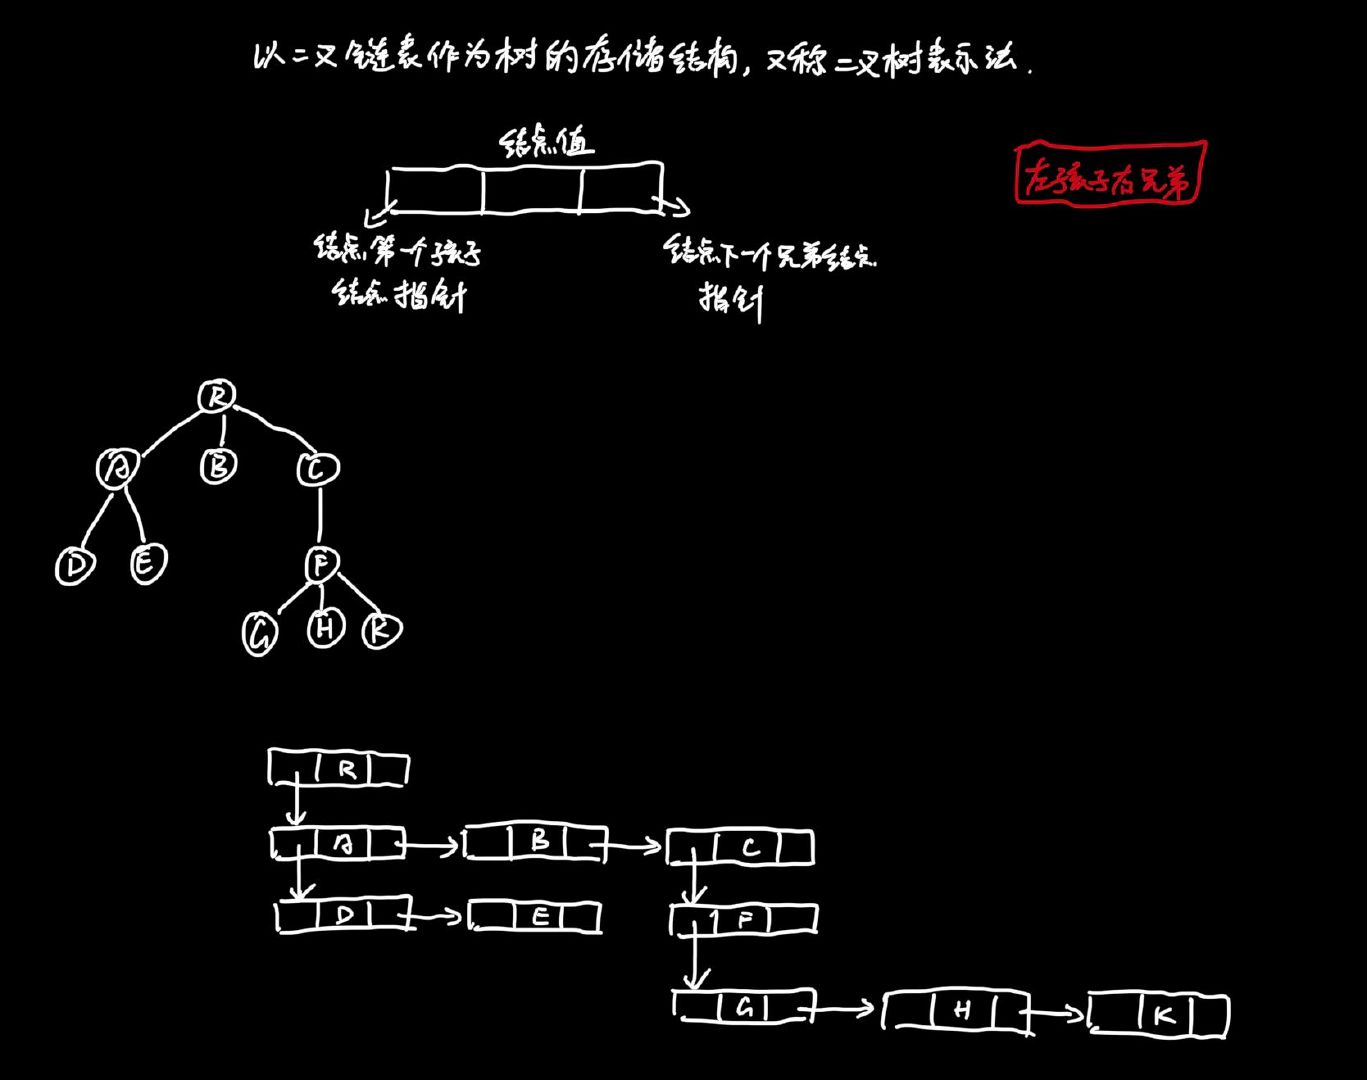 以二叉链表作为树的存储结构，又称二叉树表示法.
结点值
左孩子右兄弟
结点第一个孩子
结点指针
结点下一个兄弟结点
指针
R
A B C
D E F
G H K
R
A B C
D E F
G H K